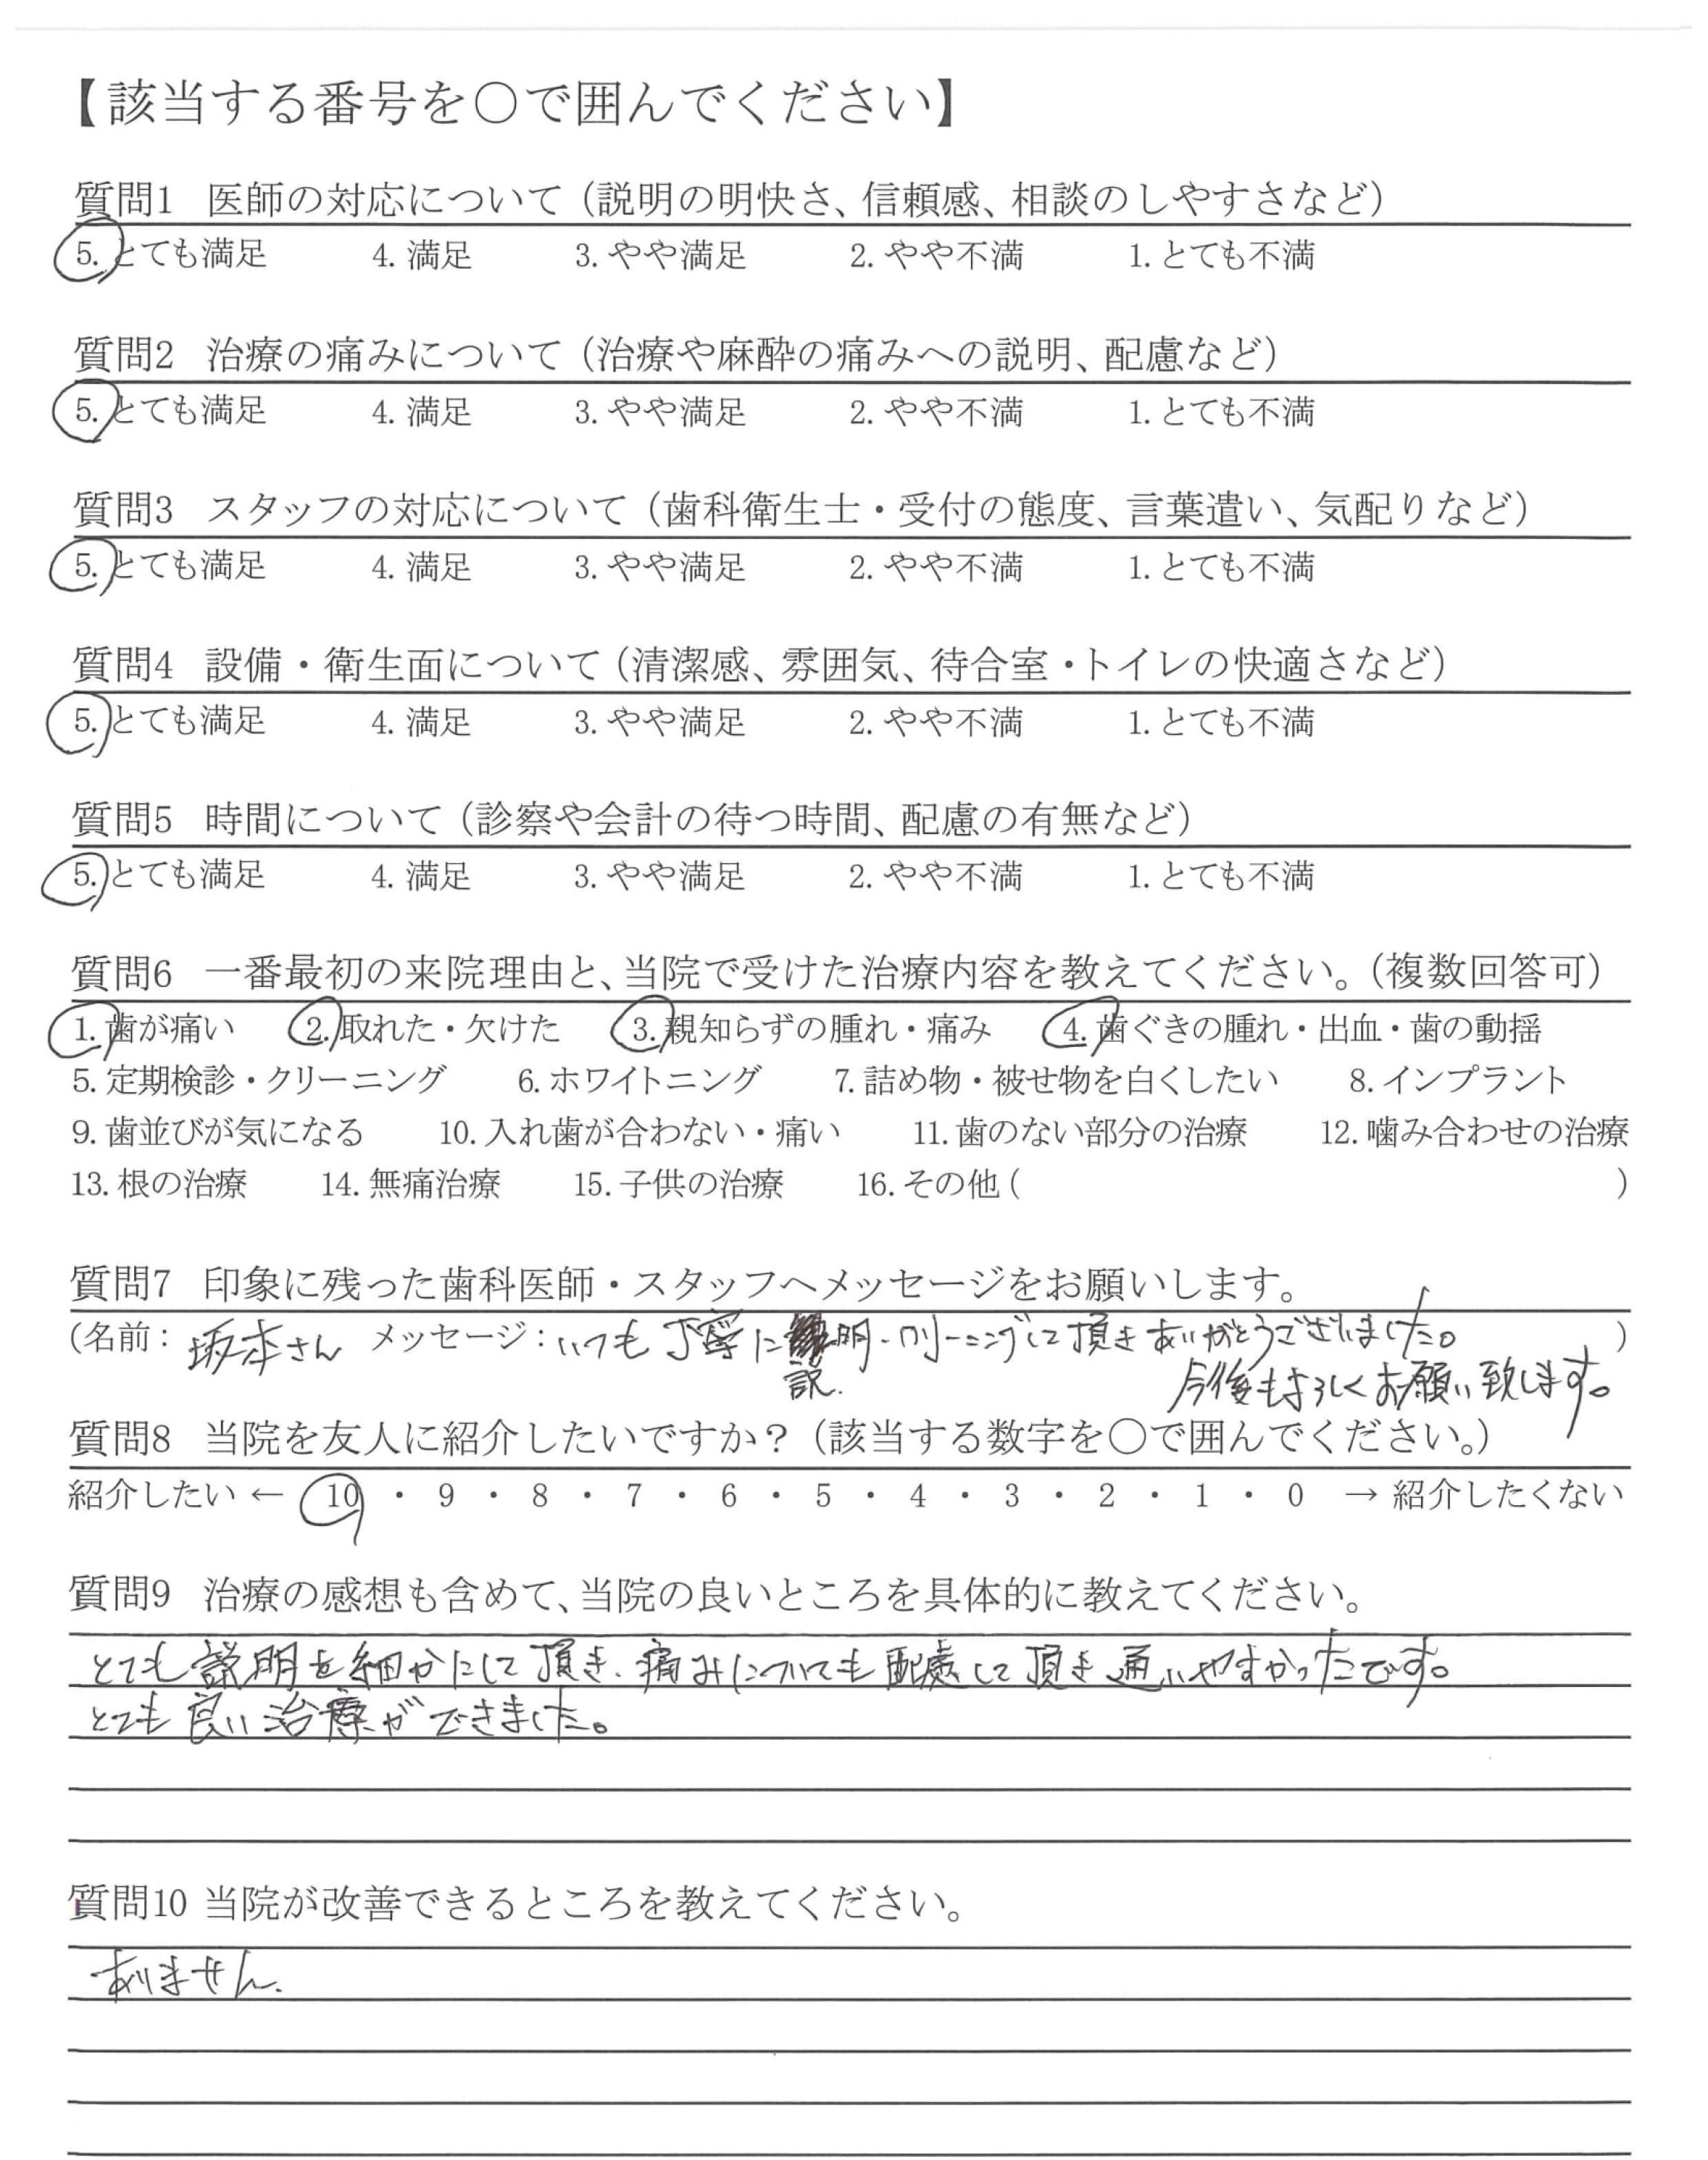 【該当する番号を○で囲んでください】
質問1 医師の対応について（説明の明快さ、信頼感、相談のしやすさなど）
5. とても満足 4. 満足 3. やや満足 2. やや不満 1. とても不満
質問2 治療の痛みについて（治療や麻酔の痛みへの説明、配慮など）
5. とても満足 4. 満足 3. やや満足 2. やや不満 1. とても不満
質問3 スタッフの対応について（歯科衛生士・受付の態度、言葉遣い、気配りなど）
5. とても満足 4. 満足 3. やや満足 2. やや不満 1. とても不満
質問4 設備・衛生面について（清潔感、雰囲気、待合室・トイレの快適さなど）
5. とても満足 4. 満足 3. やや満足 2. やや不満 1. とても不満
質問5 時間について（診察や会計の待つ時間、配慮の有無など）
5. とても満足 4. 満足 3. やや満足 2. やや不満 1. とても不満
質問6 一番最初の来院理由と、当院で受けた治療内容を教えてください。（複数回答可）
1. 歯が痛い 2. 取れた・欠けた 3. 親知らずの腫れ・痛み 4. 歯ぐきの腫れ・出血・歯の動揺
5. 定期検診・クリーニング 6. ホワイトニング 7. 詰め物・被せ物を白くしたい 8. インプラント
9. 歯並びが気になる 10. 入れ歯が合わない・痛い 11. 歯のない部分の治療 12. 噛み合わせの治療
13. 根の治療 14. 無痛治療 15. 子供の治療 16. その他（ ）
質問7 印象に残った歯科医師・スタッフへメッセージをお願いします。
（名前：坂本さん メッセージ：いつも丁寧に説明・クリーニングして頂きありがとうございました。 ）
今後もよろしくお願い致します。
質問8 当院を友人に紹介したいですか？（該当する数字を○で囲んでください。）
紹介したい ← 10 ・ 9 ・ 8 ・ 7 ・ 6 ・ 5 ・ 4 ・ 3 ・ 2 ・ 1 ・ 0 → 紹介したくない
質問9 治療の感想も含めて、当院の良いところを具体的に教えてください。
とても説明を細かにして頂き、痛みについても配慮して頂き通いやすかったです。
とても良い治療ができました。
質問10 当院が改善できるところを教えてください。
ありません。